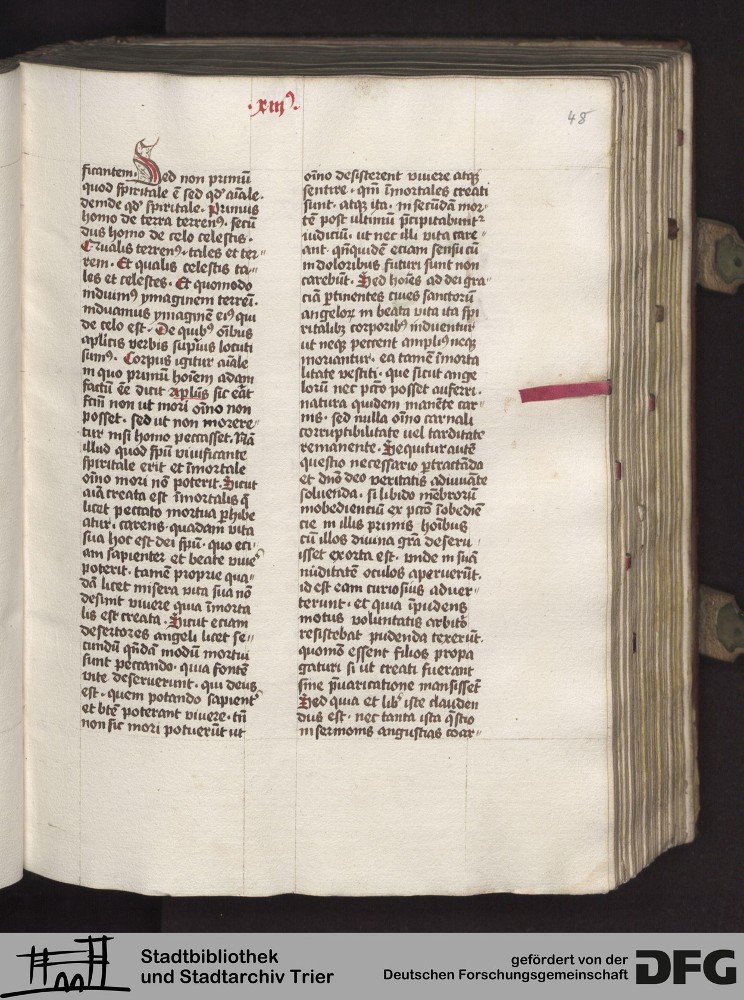 ·xiij⁹·
48
ficantem. Sed non primū
quod sp̄iritale ē sed qd' aīale·
deinde qd' sp̄iritale· Primus
homo de terra terren⁹· secū
dus homo de celo celestis·
Qualis terren⁹· tales et ter-
reni· Et qualis celestis ta-
les et celestes· Et quomodo
induim⁹ ymaginem terreni·
induamus ymaginē ei⁹ qui
de celo est· De quib⁹ oībus
aplicis verbis superius locuti
sum⁹· Corpus igitur aīale
in quo primū hoīem adam
factū eē dicit Apl̄us sic erat
fctm̄ non ut mori oīno non
posset· sed ut non morere-
tur nisi homo peccasset· Nā
illud quod sp̄u viuificante
sp̄iritale erit et īmortale
oīno mori nō poterit· Sicut
aīa creata est īmortalis q̄
licet peccato mortua p̄hibe
atur· carens quadam vita
sua hoc est dei sp̄u· quo eci-
am sapienter et beate viue
poterit· tamē proprie qua-
dā licet misera vita sua nō
desinit viuere quia īmorta
lis est creata· Sicut eciam
desertores angeli licet se-
cundū qn̄dā modū mortui
sunt peccando· quia fontē
vite deseruerunt· qui deus
est· quem potando sapient'
et bt̄e poterant viuere· tn̄
non sic mori potuerūt ut
oīno desisterent viuere atq3
sentire· qm̄ īmortales creati
sunt· atq3 ita· in secūdā mor-
tē post ultimū p̄cipitabunt²
iudiciū· ut nec illi vita care-
ant· qn̄quidē eciam sensu cū
in doloribus futuri sunt non
carebūt· Sed hoīes ad dei gra-
ciā p̄tinentes ciues sanctorū
angelorū in beata vita ita sp̄i
ritalib3 corporib⁹ induentur
ut neq3 peccent ampli⁹ neq3
moriantur· ea tamē īmorta
litate vestiti· que sicut ange
lorū nec pctō posset auferri·
natura quidem manēte car-
nis· sed nulla oīno carnali
corruptibilitate vel tarditate
remanente· Sequitur autē
questio necessario p̄tractāda
et dn̄o deo veritatis adiuuāte
soluenda· si libido mēbrorū
inobedienciū ex pctō īobediē
cie in illis primis hoībus
cū illos diuina grā deseru-
isset exorta est· vnde in suā
nuditatē oculos aperuerūt·
id est eam curiosius aduer-
terunt· et quia īpudens
motus voluntatis arbitō
resistebat pudenda texerūt·
quomō essent filios propa
gaturi si ut creati fuerant
sine p̄uaricatione mansissēt
Sed quia et lib' iste clauden
dus est· nec tanta ista q̄stio
in sermonis angustias coar-
Stadtbibliothek
und Stadtarchiv Trier
gefördert von der
Deutschen Forschungsgemeinschaft
DFG